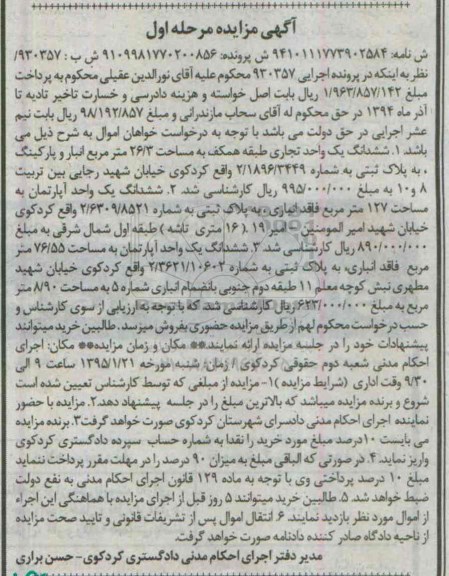 آگهی مزایده مرحله اول
ش نامه: ۹۴۱۰۱۱۱۷۷۳۹۰۲۵۸۴ ش پرونده: ۹۱۰۹۹۸۱۷۷۰۲۰۰۸۵۶ ش ب : ۹۳۰۳۵۷/
نظر به اینکه در پرونده اجرایی ۹۳۰۳۵۷ محکوم علیه آقای نورالدین عقیلی محکوم به پرداخت
مبلغ ۱/۹۶۳/۸۵۷/۱۴۲ ریال بابت اصل خواسته و هزینه دادرسی و خسارت تاخیر تادیه تا
آذر ماه ۱۳۹۴ در حق محکوم له آقای سحاب مازندرانی و مبلغ ۹۸/۱۹۲/۸۵۷ ریال بابت نیم
عشر اجرایی در حق دولت می باشد با توجه به درخواست خواهان اموال به شرح ذیل می
باشد. ۱. ششدانگ یک واحد تجاری طبقه همکف به مساحت ۲۶/۳ متر مربع انبار و پارکینگ
۰ به پلاک ثبتی به شماره ۲/۱۸۹۶/۳۴۴۹ واقع کردکوی خیابان شهید رجایی بین تربیت
۸ و ۱۰ به مبلغ ۹۹۵/۰۰۰/۰۰۰ ریال کارشناسی شد. ۲. ششدانگ یک واحد آپارتمان به
مساحت ۱۲۷ متر مربع فاقد انباری، به پلاک ثبتی به شماره ۲/۶۳۰۹/۸۵۲۱ واقع کردکوی
خیابان شهید امیر المومنین - امیر ۱۹ .( ۱۶ متری تاشه ) طبقه اول شمال شرقی به مبلغ
۸۹۰/۰۰۰/۰۰۰ ریال کارشناسی شد. ۳. ششدانگ یک واحد آپارتمان به مساحت ۷۶/۵۵ متر
مربع فاقد انباری، به پلاک ثبتی به شماره ۲/۳۶۲۱/۱۰۶۰۲ واقع کردکوی خیابان شهید
مطهری نبش کوچه معلم ۱۱ طبقه دوم جنوبی بانضمام انباری شماره ۵ به مساحت ۸/۹۰ متر
مربع به مبلغ ۶۲۳/۰۰۰/۰۰۰ ریال کارشناسی شد. که با توجه به ارزیابی از سوی کارشناس و
حسب درخواست محکوم لهم از طریق مزایده حضوری بفروش میرسد. طالبین خرید میتوانند
پیشنهادات خود را در جلسه مزایده ارائه نمایند.** مکان و زمان مزایده** مکان: اجرای
احکام مدنی شعبه دوم حقوقی کردکوی / زمان: شنبه مورخه ۱۳۹۵/۱/۲۱ ساعت ۹ الی
۹/۳۰ وقت اداری (شرایط مزایده )۱- مزایده از مبلغی که توسط کارشناس تعیین شده است
شروع و برنده مزایده میباشد که بالاترین مبلغ را در جلسه پیشنهاد دهد.۲. مزایده با حضور
نماینده اجرای احکام مدنی دادسرای شهرستان کردکوی صورت خواهد گرفت.۳. برنده مزایده
می بایست ۱۰درصد مبلغ مورد خرید را نقدا به شماره حساب سپرده دادگستری کردکوی
واریز نماید. ۴. در صورتی که الباقی مبلغ به میزان ۹۰ درصد را در مهلت مقرر پرداخت ننماید
مبلغ ۱۰ درصد پرداختی وی با توجه به ماده ۱۲۹ قانون اجرای احکام مدنی به نفع دولت
ضبط خواهد شد. ۵. طالبین خرید میتوانند ۵ روز قبل از اجرای مزایده با هماهنگی این اجراء
از اموال مورد نظر بازدید نمایند. ۶. انتقال اموال پس از تشریفات قانونی و تایید صحت مزایده
از ناحیه دادگاه صادر کننده دادنامه صورت خواهد گرفت.
مدیر دفتر اجرای احکام مدنی دادگستری کردکوی- حسن براری